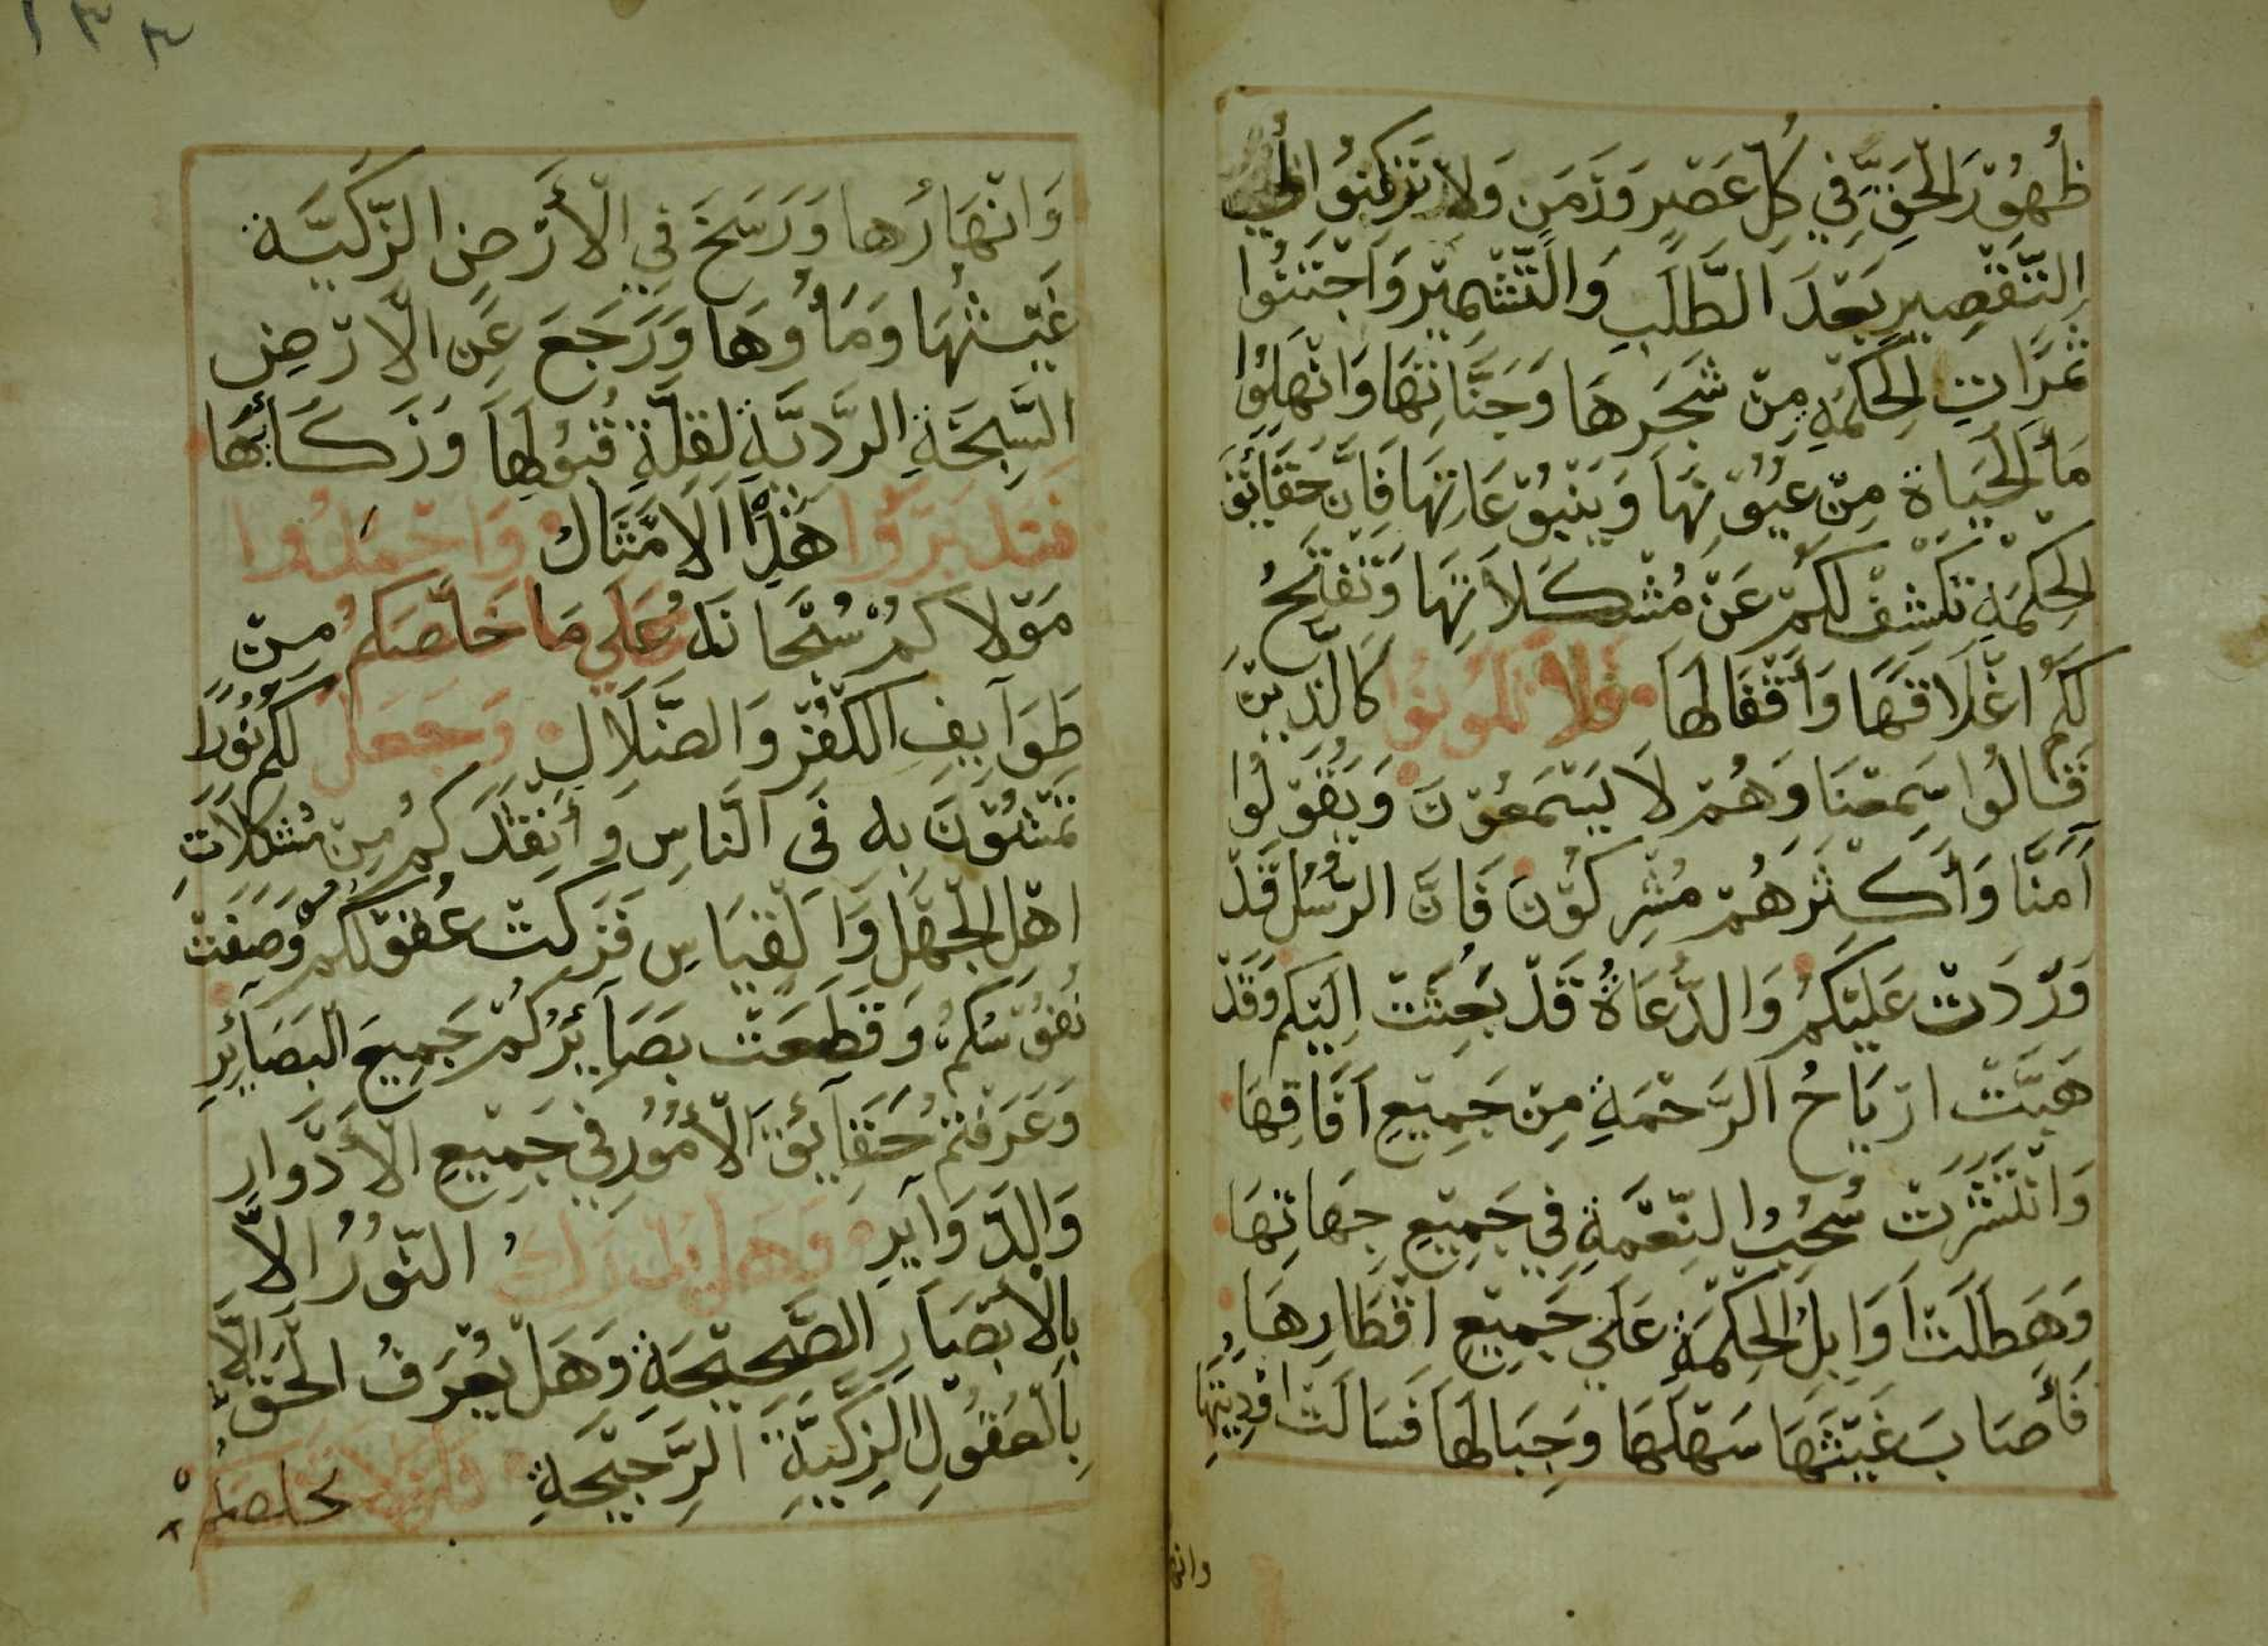 ظُهُوْرَ الْحَقِّ فِي كُلِّ عَصْرٍ وَزَمَنٍ وَلَا تَرْكَنُوْا إلى
التَّقْصِيرِ بَعْدَ الطَّلَبِ وَالتَّشْمِيْرِ وَاجْتَنُوا
ثَمَرَاتِ الْحِكْمَةِ مِنْ شَجَرِهَا وَجَنَّاتِهَا وَانْهَلُوا
مَأَ الْحَيَاة مِنْ عُيُوْنِهَا وَيَنْبُوْعَاتِهَا فَإِنَّ حَقَائِقَ
الْحِكْمَةِ تَكْشِفْ لَكُمْ عَنْ مُشْكَلَاتِهَا وَتَفْتَحُ
لَكُمُ اغْلَاقَهَا وَأَقْفَالَهَا فَلَا تَكُونُوا كَالَّذِيْنَ
قَالُوا سَمِعْنَا وَهُمْ لَا يَسْمَعُوْنَ وَيَقُوْلُوا
آمَنَّا وَأَكْثَرَهُمْ مُشْرِكُوْنَ فَانَّ الرُّسُلَ قَدْ
وَرَدَتْ عَلَيْكُمْ وَالدُّعَاةُ قَدْ بُعِثَتْ اِلَيْكُمْ وَقَدْ
هَبَّتْ ارْيَاحُ الرَّحْمَةِ مِنْ جَمِيْعِ آفَاقِهَا
وَانْتَشَرَتْ سُحُبُ النِّعْمَةِ فِي جَمِيْعِ جِهَاتِهَا
وَهَطَلَتْ اوَابِلُ الْحِكْمَةِ عَلَى جَمِيْعِ اقْطَارِهَا
فَأَصَابَ غَيْثَهَا سَهْلَهَا وَجِبَالَهَا فَسَالَتْ اوْدِيَتُهَا
وانها
١٣٣
وَانْهَارُهَا وَرَسَخَ فِي الْأَرْضِ الزَّكِيَّة
غَيْثُهَا وَمَأُوهَا وَرَجَعَ عَنِ الْارْضِ
السَّبِخَةِ الرَّدِيَّةِ لِقِلَّةِ قُبُوْلِهَا وَزَكَائِهَا
فَتَدَبَّرُوْا هَذِا الْامْثَالْ وَاحْمَدُوا
مَوْلَاكُمْ سُبْحَانَهُ عَلَى مَا خَلَّصَكُمْ مِنْ
طَوَايِفِ الْكُفْرِ وَالضَّلَالِ وَجَعَلَ لَكُمْ نُوْرًا
تَمْشُوْنَ بِهِ فِي النَّاسِ وَأَنْقَذَكُمْ مِنْ مُشْكِلَاتِ
اهْلِ الْجَهْلِ وَالْقِيَاسِ فَزَكَتْ عُقُوْلُكُمْ وَصَفَتْ
نُفُوْسُكُمْ وَقَطَعَتْ بَصَآئِرُكُمْ جَمِيعَ الْبَصَآئِرِ
وَعَرَفْتُمْ حَقَآئِقَ الْأُمُوْرِ فِي جَمِيْعِ الْأَدْوَارِ
وَالدَّوَآيِرِ وَهَلْ يُدْرَكُ النُّوْرُ الَّا
بِالْأَبْصَارِ الصَّحِيْحَةِ وَهَلْ يُعْرَفُ الْحَقّ الَّا
بِالْعُقُوْلِ الزَّكِيَّةِ الرَّجِيْحَةِ